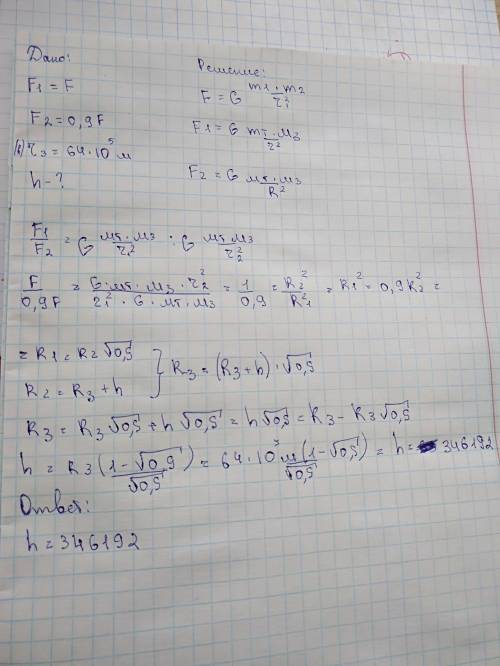 Дано:
F1 = F
F2 = 0,9F
r3 = 64·10⁵ м
h - ?
Решение:
F = G m1·m2 / r²
F1 = G mт·м3 / r²
F2 = G мт·м3 / R²
F1/F2 = G мт·м3 / r² : G мт м3 / r2²
F/0,9F = G·мт·м3·r2² / r1²·G·мт·м3 = 1/0,9 = R2²/R1² = R1² = 0,9R2² =
= R1 = R2 √0,9 } R3 = (R3 + h)·√0,9
R2 = R3 + h
R3 = R3 √0,9 + h √0,9 = h √0,9 = R3 - R3 √0,9
h = R3 (1 - √0,9) / √0,9 = 64·10⁵ м (1 - √0,9) / √0,9 = h = 346192
Ответ:
h = 346192